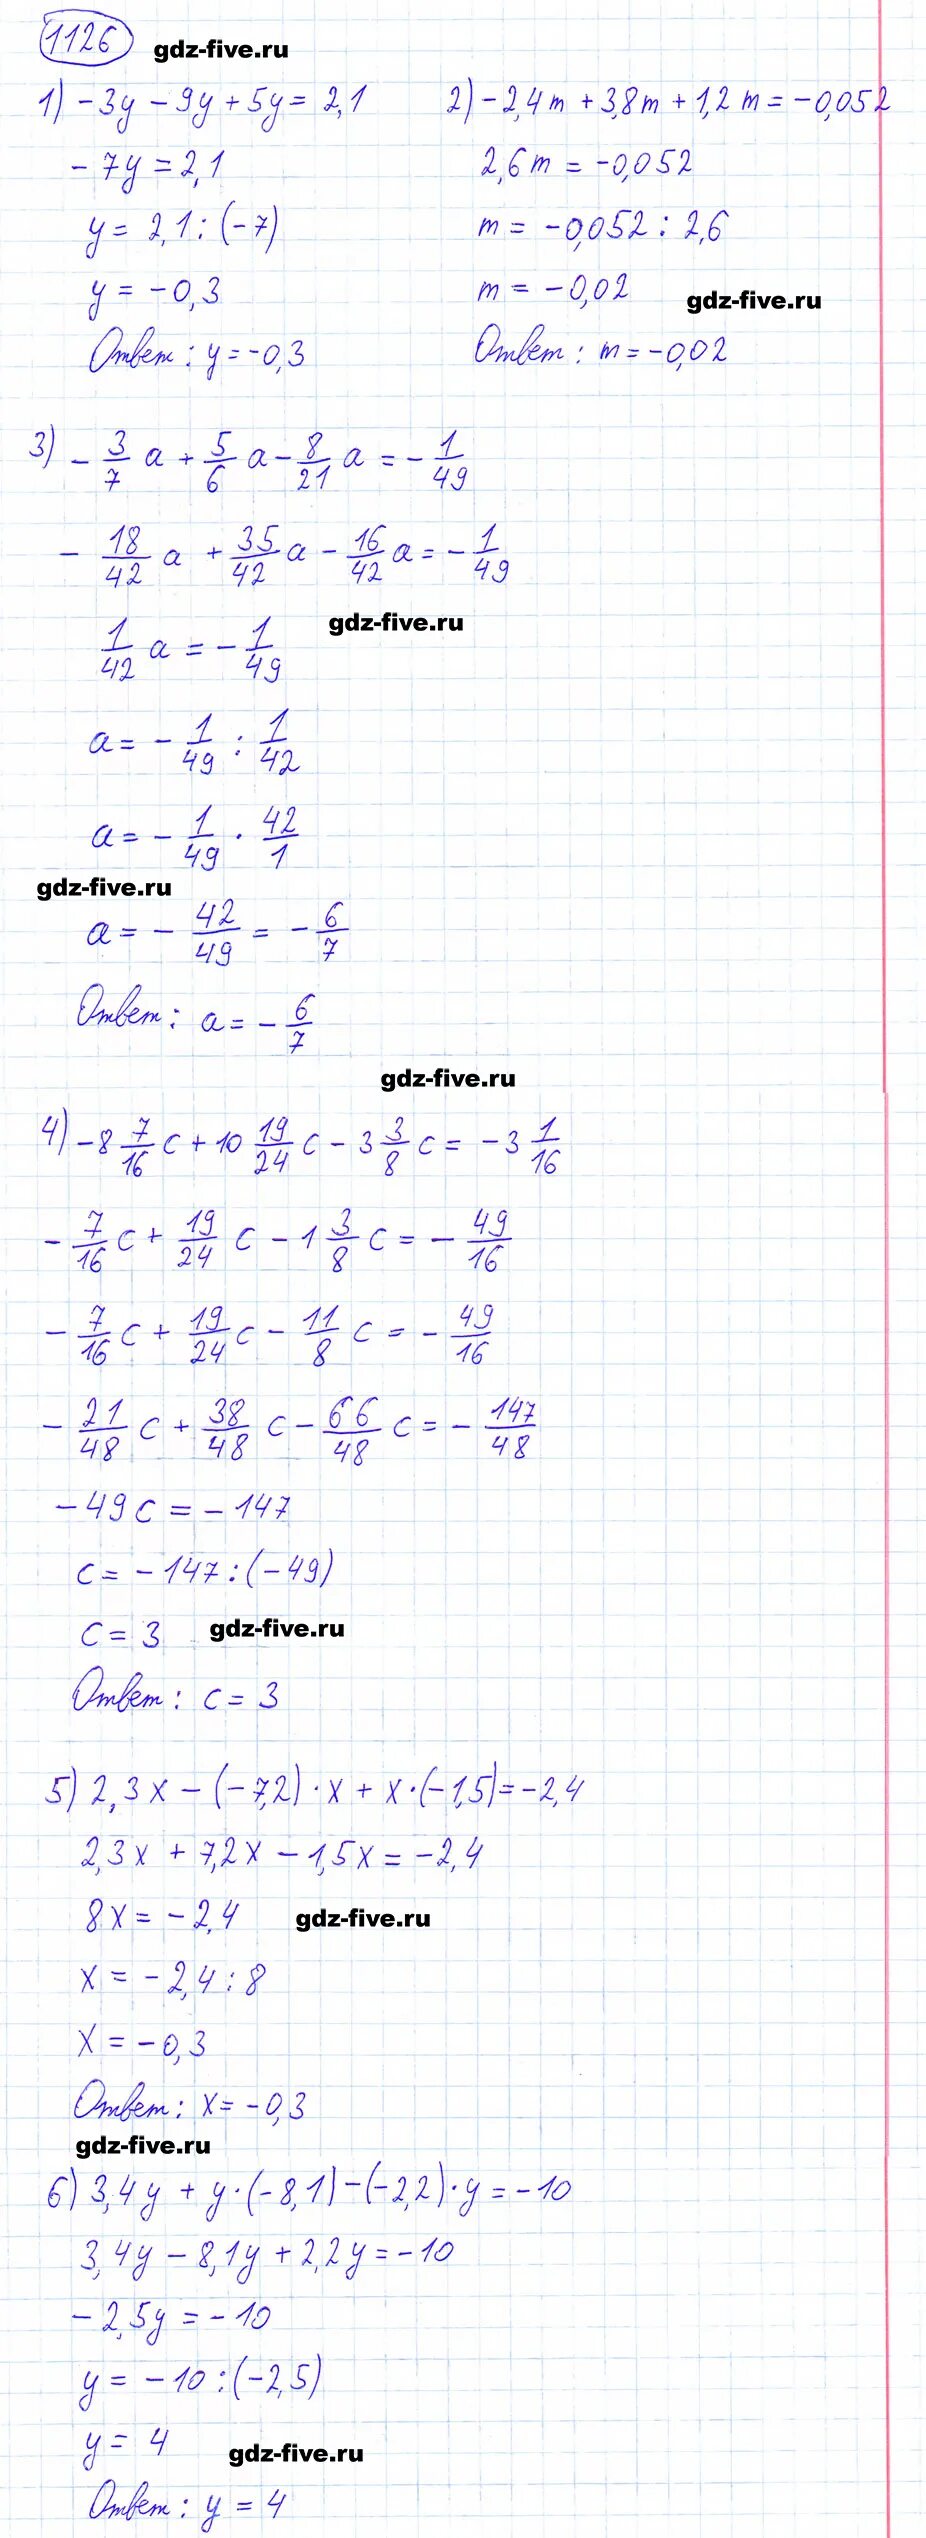 1126 gdz-five.ru
1) -3y - 9y + 5y = 2,1
-7y = 2,1
y = 2,1 : (-7)
y = -0,3
Ответ: y = -0,3
2) -2,4m + 3,8m + 1,2m = -0,052
2,6m = -0,052
m = -0,052 : 2,6
m = -0,02
gdz-five.ru
Ответ: m = -0,02
3) -3/7 a + 5/6 a - 8/21 a = -1/49
-18/42 a + 35/42 a - 16/42 a = -1/49
gdz-five.ru
1/42 a = -1/49
a = -1/49 : 1/42
a = -1/49 · 42/1
gdz-five.ru
a = -42/49 = -6/7
Ответ: a = -6/7
gdz-five.ru
4) -8 7/16 c + 10 19/24 c - 3 3/8 c = -3 1/16
-7/16 c + 19/24 c - 1 3/8 c = -49/16
-7/16 c + 19/24 c - 11/8 c = -49/16
-21/48 c + 38/48 c - 66/48 c = -147/48
-49c = -147
c = -147 : (-49)
c = 3 gdz-five.ru
Ответ: c = 3
5) 2,3x - (-7,2) · x + x · (-1,5) = -2,4
2,3x + 7,2x - 1,5x = -2,4
8x = -2,4 gdz-five.ru
x = -2,4 : 8
x = -0,3
Ответ: x = -0,3
gdz-five.ru
6) 3,4y + y · (-8,1) - (-2,2) · y = -10
3,4y - 8,1y + 2,2y = -10
-2,5y = -10
y = -10 : (-2,5)
y = 4 gdz-five.ru
Ответ: y = 4